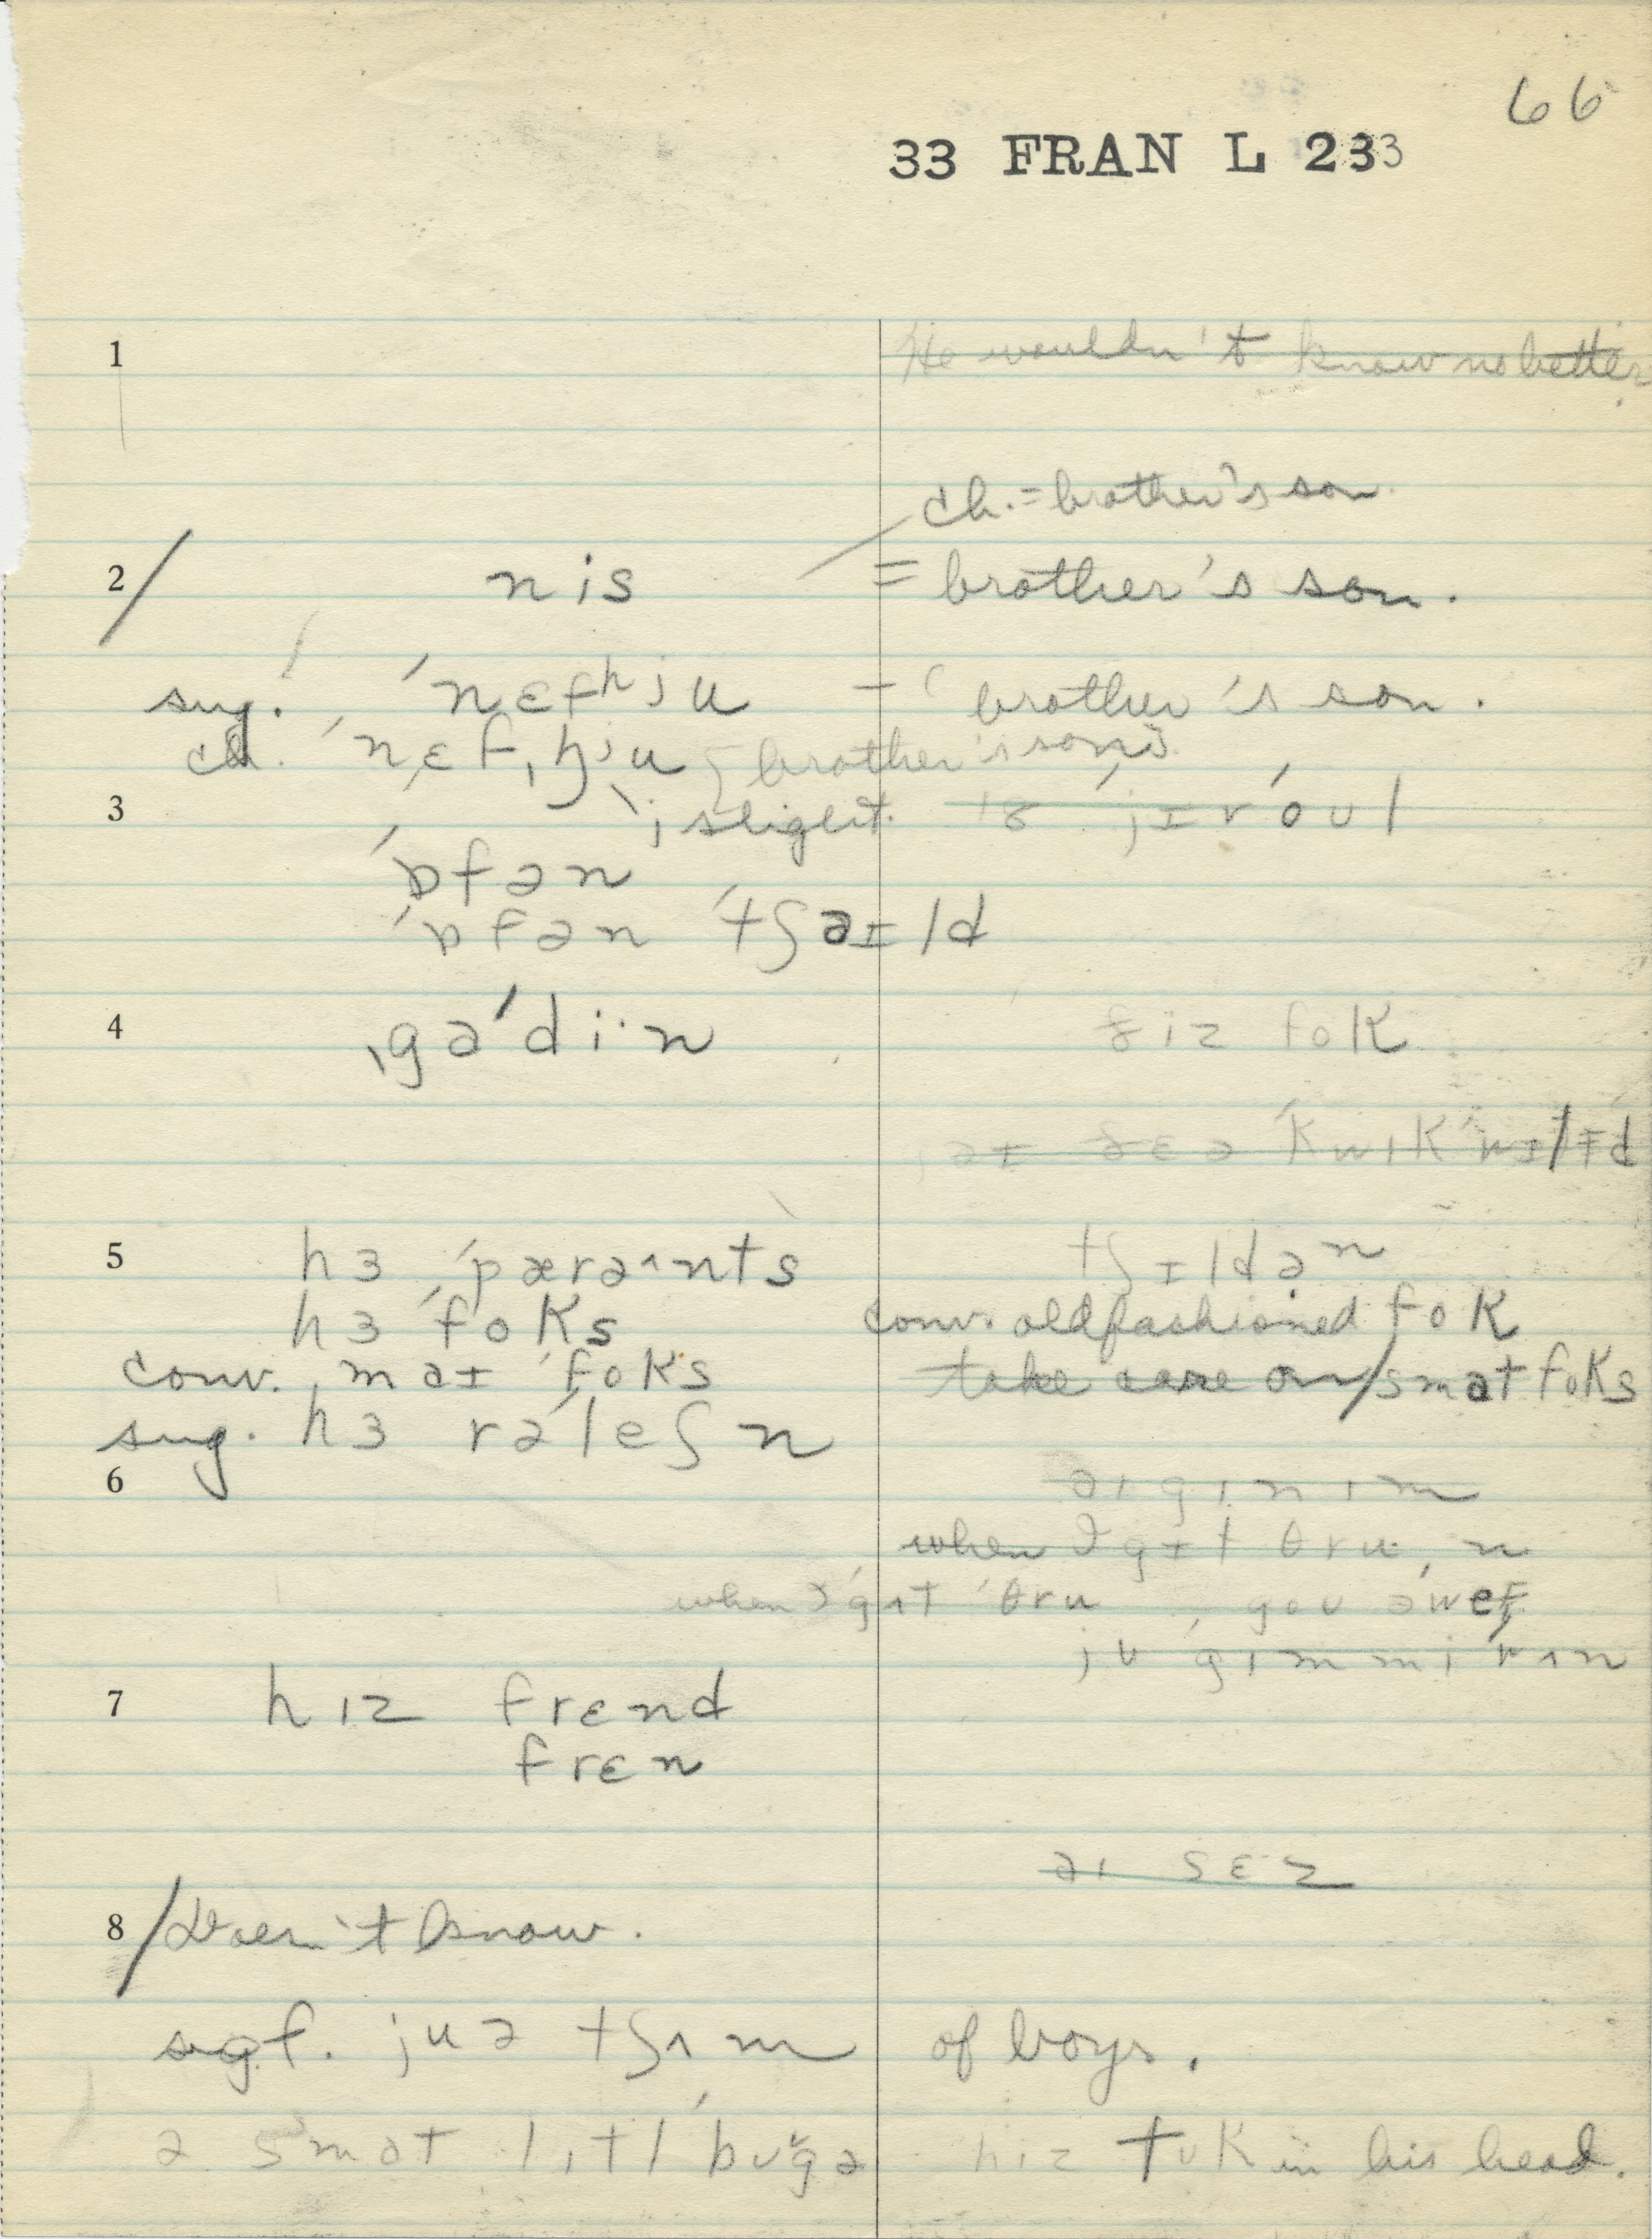 66
33 FRAN L 233
1 He wouldn't know no better.
ch. = brother's son.
2/ nis = brother's son.
sug. ! ˈnɛfʰju – ( brother's son.
ch. ˈnɛf,hju brother's sons.
3 j slight. jɪrˈoul
ˈɒfən
ˈɒfən ˈtʃəɪld
4 ˌgəˈdi·n ðiz fok
əɪ ə ˈkwɪk
5 hɜ ˈpærəʌnts tʃɪldən
hɜ ˈfoks conv. old fashioned fok
conv. ˌməɪ ˈfoks take care on/smat foks
sug. hɜ rəˈleʃn
6 əɪ gɪn ɪm
when I gɪt θru, n
when I gɪt ˈθru, gou əˈweɪ
ju gɪm mi
7 hɪz frɛnd
frɛn
əɪ sɛz
8/ Doesn't know.
sgf. juə tʃʌm of boys.
ə smɑt lɪtl ˈbʊgə hiz tʊk in his head.